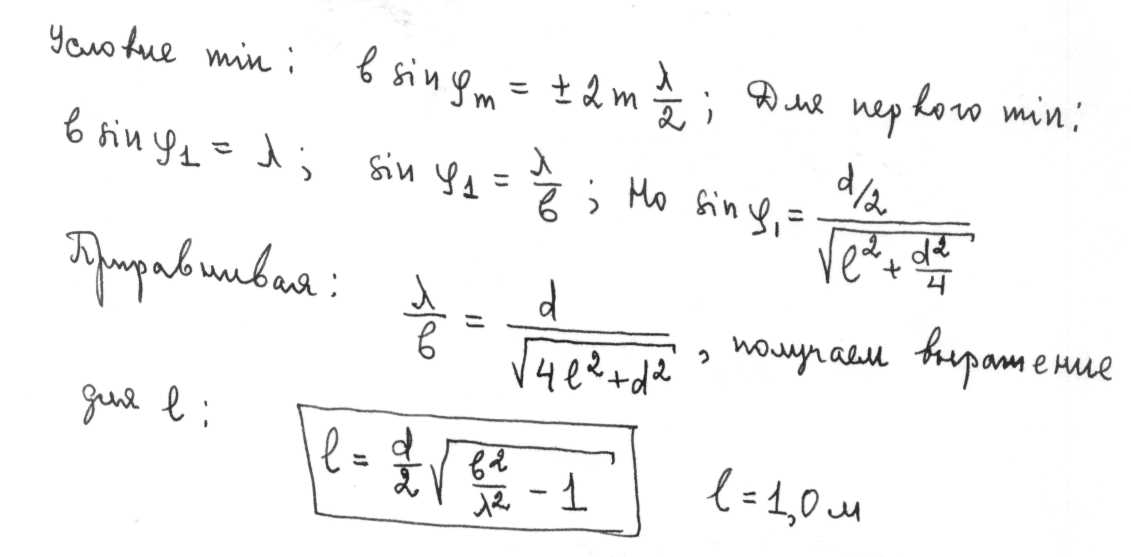 Условие min: b sin φ_m = ± 2m λ/2; Для первого min:
b sin φ_1 = λ; sin φ_1 = λ/b; Но sin φ_1 = (d/2)/√(l² + d²/4)
Приравнивая: λ/b = d/√(4l² + d²), получаем выражение
для l: l = d/2 √(b²/λ² - 1) l = 1,0 м